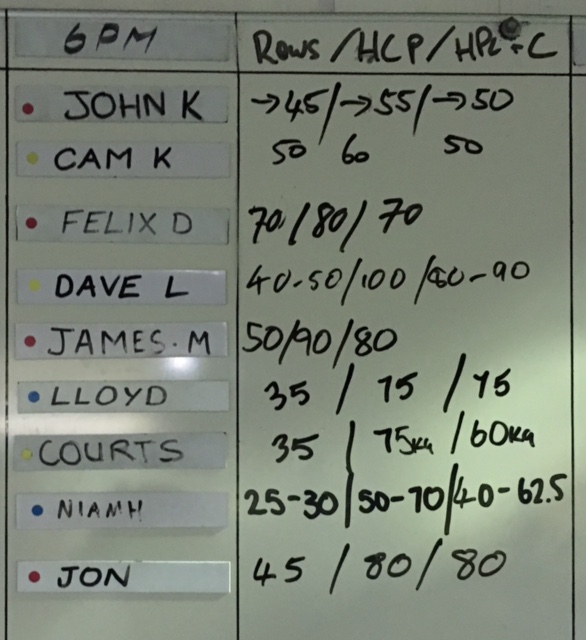 6PM Rows/HCP/HPC+C
JOHN K →45/→55/→50
CAM K 50 60 50
FELIX D 70/80/70
DAVE L 40-50/100/80-90
JAMES.M 50/90/80
LLOYD 35 / 75 / 75
COURTS 35 / 75kg / 60kg
NIAMH 25-30/50-70/40-62.5
JON 45 / 80 / 80